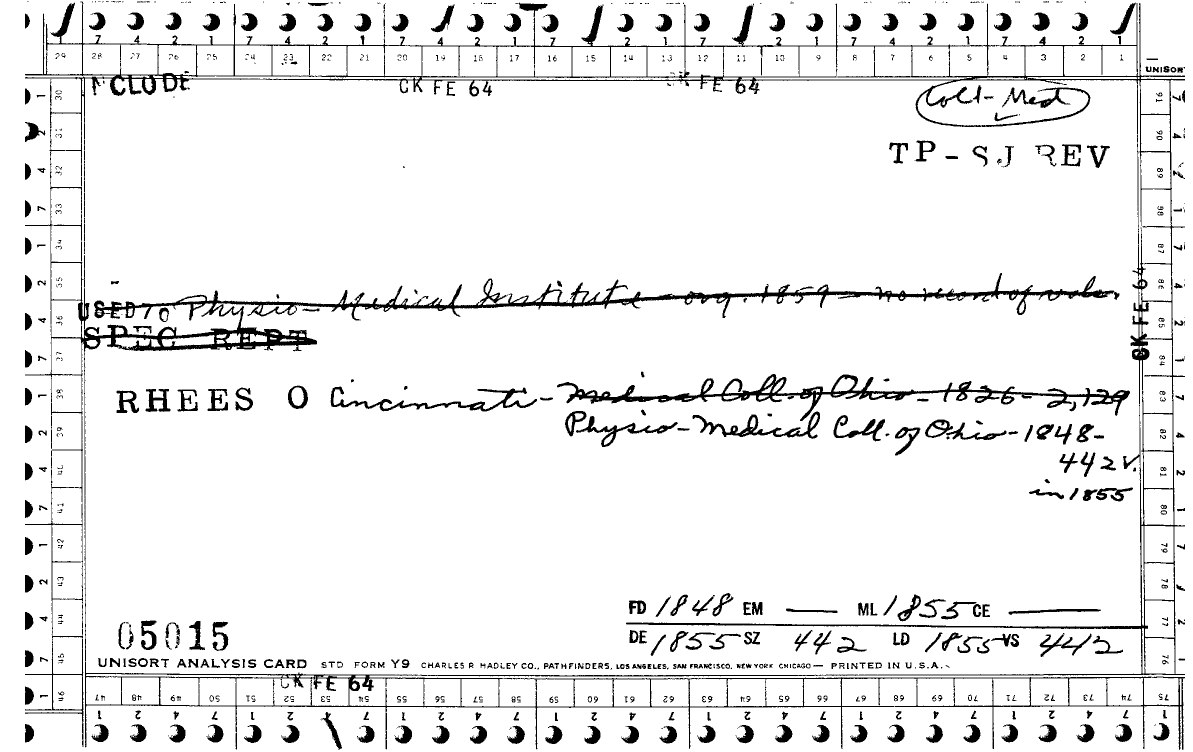 7 4 2 1 7 4 2 1 7 4 2 1 7 4 2 1 7 4 2 1 7 4 2 1 7 4 2 1
29 28 27 26 25 24 23 22 21 20 19 18 17 16 15 14 13 12 11 10 9 8 7 6 5 4 3 2 1
UNISORT
NCLUDE CK FE 64 CK FE 64
Coll-Med
TP-SJ REV
USED TO Physio-Medical Institute - org. 1859 - no record of vols.
SPEC REPT
CK FE 64
RHEES O Cincinnati - Medical Coll. of Ohio - 1826 - 2,129
Physio-Medical Coll. of Ohio - 1848-
442 V.
in 1855
FD 1848 EM — ML 1855 CE —
DE 1855 SZ 442 LD 1855 VS 442
05015
UNISORT ANALYSIS CARD STD FORM Y9 CHARLES R HADLEY CO., PATHFINDERS, LOS ANGELES, SAN FRANCISCO, NEW YORK CHICAGO — PRINTED IN U.S.A.
CK FE 64
1 30
2 31
4 32
7 33
1 34
2 35
4 36
7 37
1 38
2 39
4 40
7 41
1 42
2 43
4 44
7 45
1 46
91
90
89
88
87
86
85
84
83
82
81
80
79
78
77
76
47 48 49 50 51 52 53 54 55 56 57 58 59 60 61 62 63 64 65 66 67 68 69 70 71 72 73 74 75
1 2 4 7 1 2 4 7 1 2 4 7 1 2 4 7 1 2 4 7 1 2 4 7 1 2 4 7 1